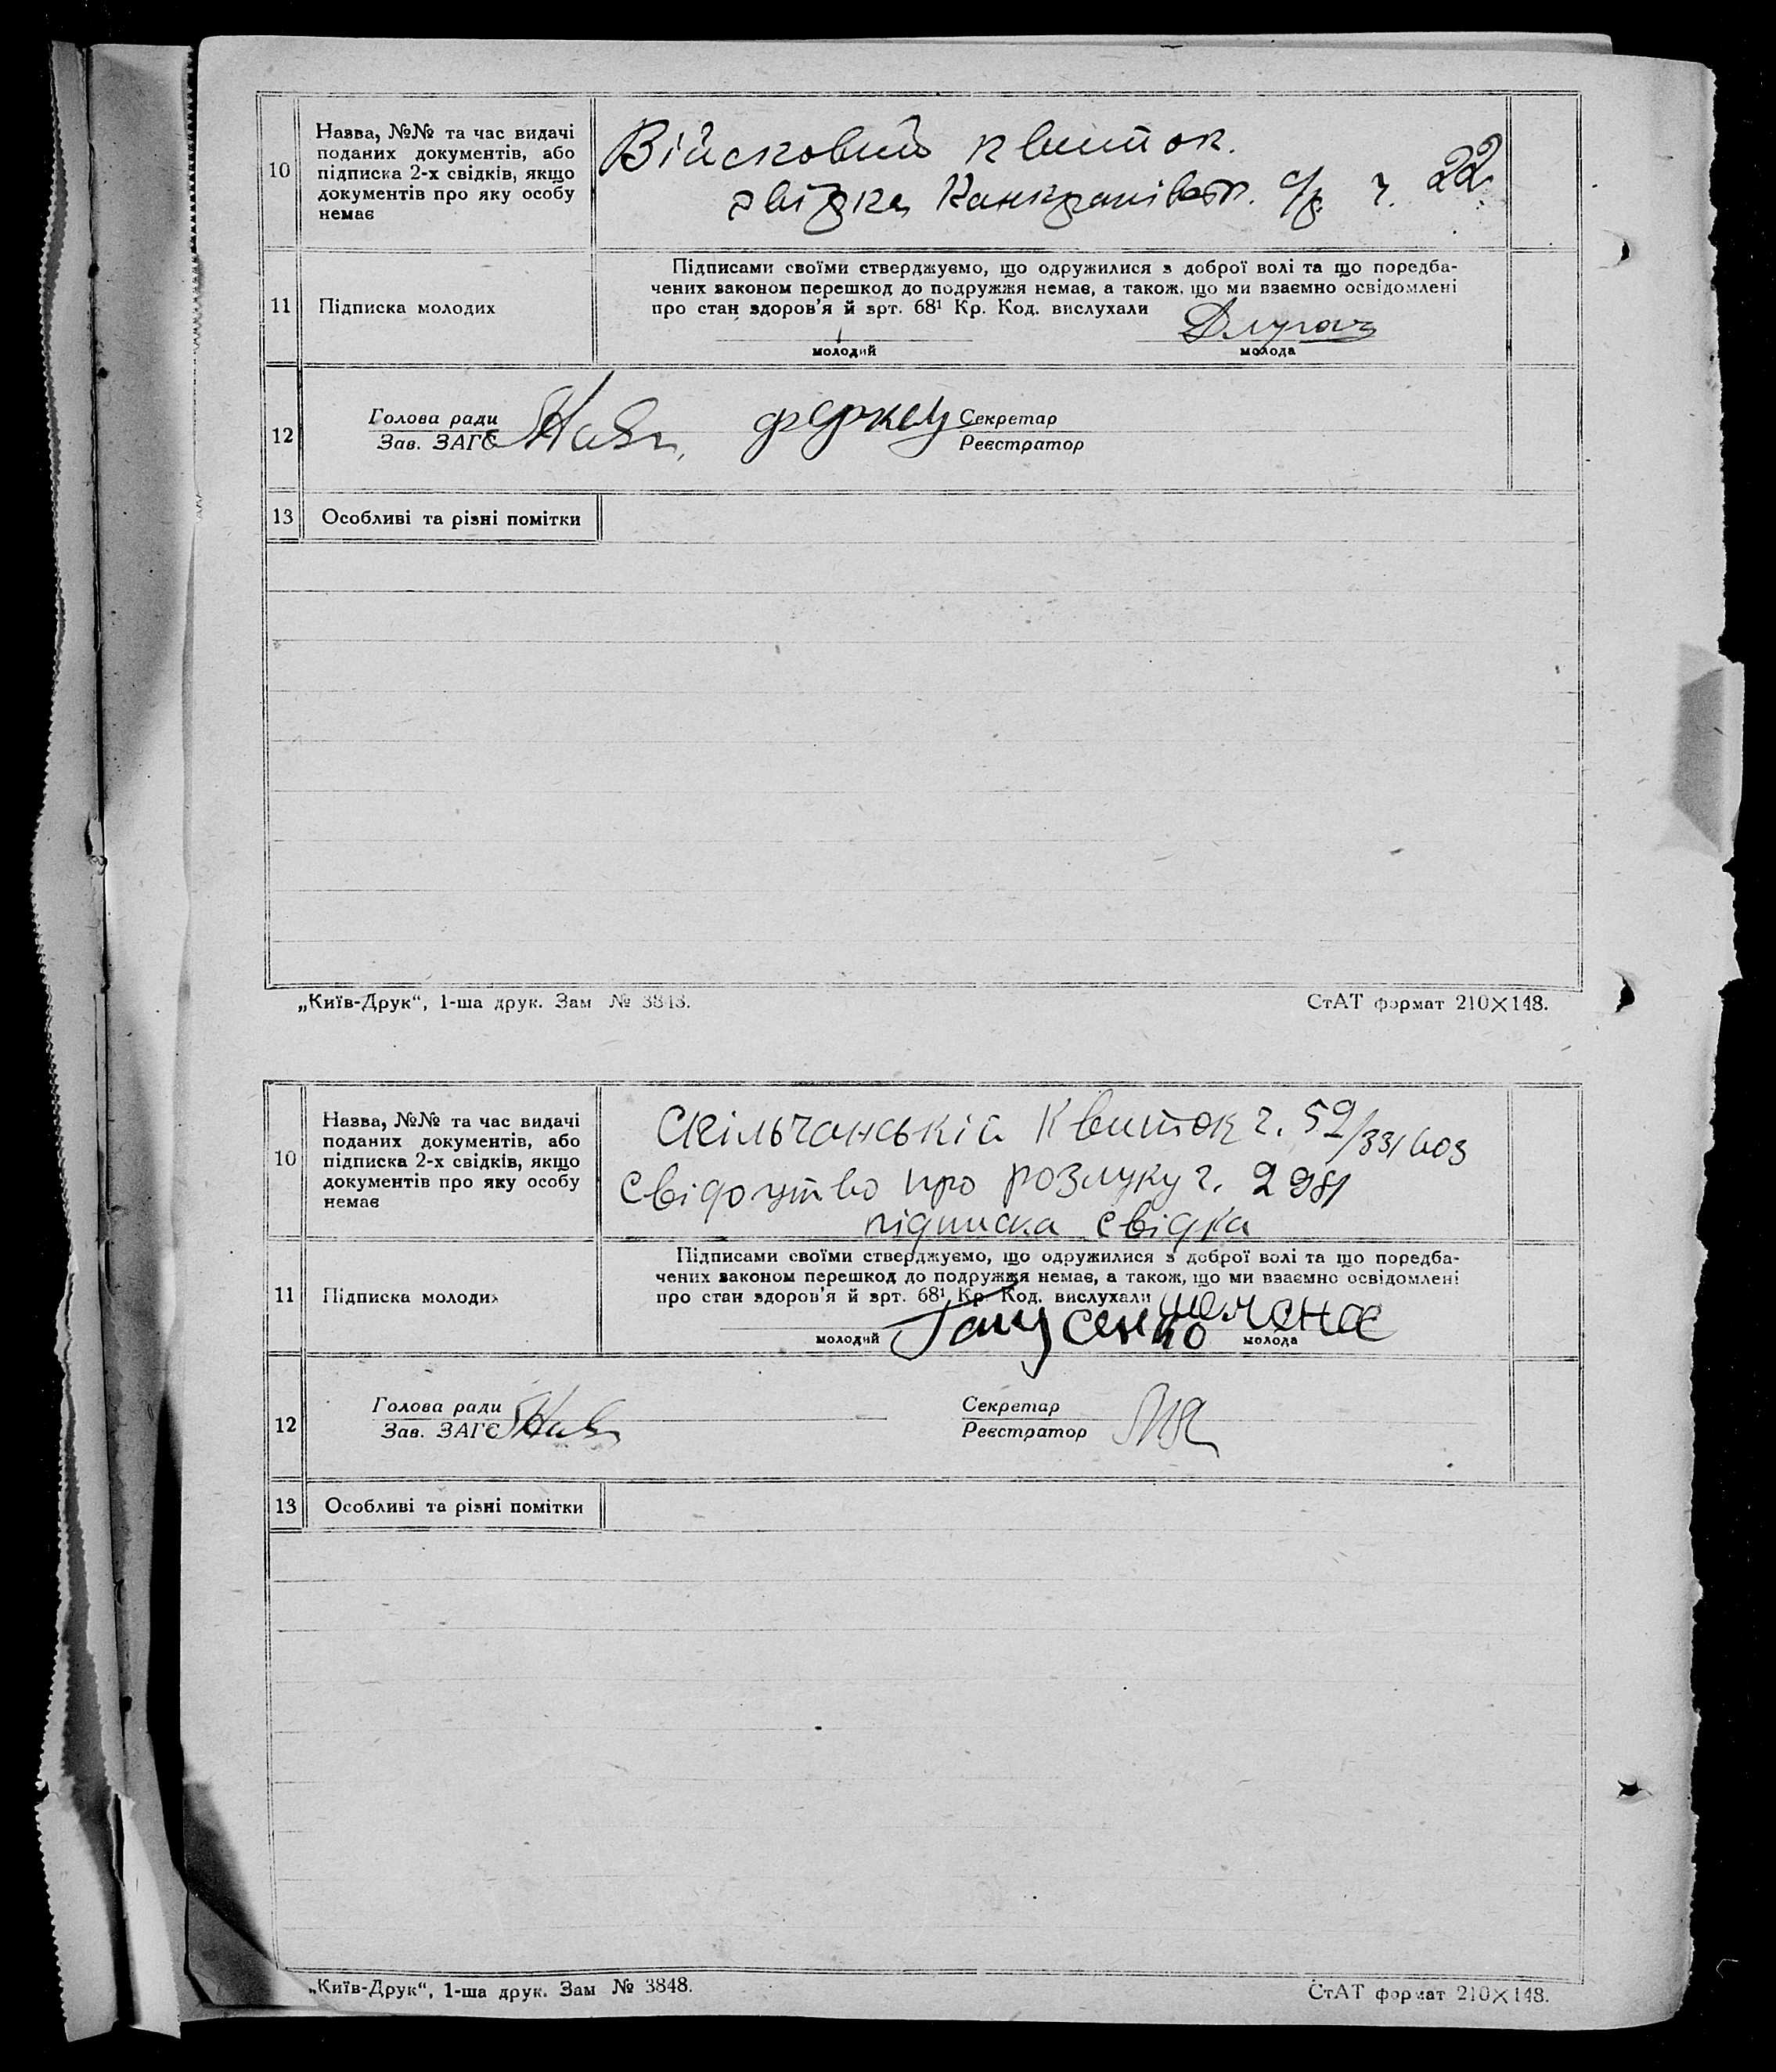 10
Назва, №№ та час видачі
поданих документів, або
підписка 2-х свідків, якщо
документів про яку особу
немає
Військовий квиток.
звідка с/р. ч. 22
11
Підписка молодих
Підписами своїми стверджуємо, що одружилися з доброї волі та що передба-
чених законом перешкод до подружжя немає, а також, що ми взаємно освідомлені
про стан здоров'я й арт. 68¹ Кр. Код. вислухали
молодий
молода
12
Голова ради
Зав. ЗАГС
Секретар
Реєстратор
13
Особливі та різні помітки
„Київ-Друк“, 1-ша друк. Зам № 3848.
СтАТ формат 210×148.
10
Назва, №№ та час видачі
поданих документів, або
підписка 2-х свідків, якщо
документів про яку особу
немає
Скільчанській квиток ч. 59/331603
свідоцтво про розлуку ч. 2981
підписка свідка
11
Підписка молодих
Підписами своїми стверджуємо, що одружилися з доброї волі та що передба-
чених законом перешкод до подружжя немає, а також, що ми взаємно освідомлені
про стан здоров'я й арт. 68¹ Кр. Код. вислухали
молодий
молода
12
Голова ради
Зав. ЗАГС
Секретар
Реєстратор
13
Особливі та різні помітки
„Київ-Друк“, 1-ша друк. Зам № 3848.
СтАТ формат 210×148.